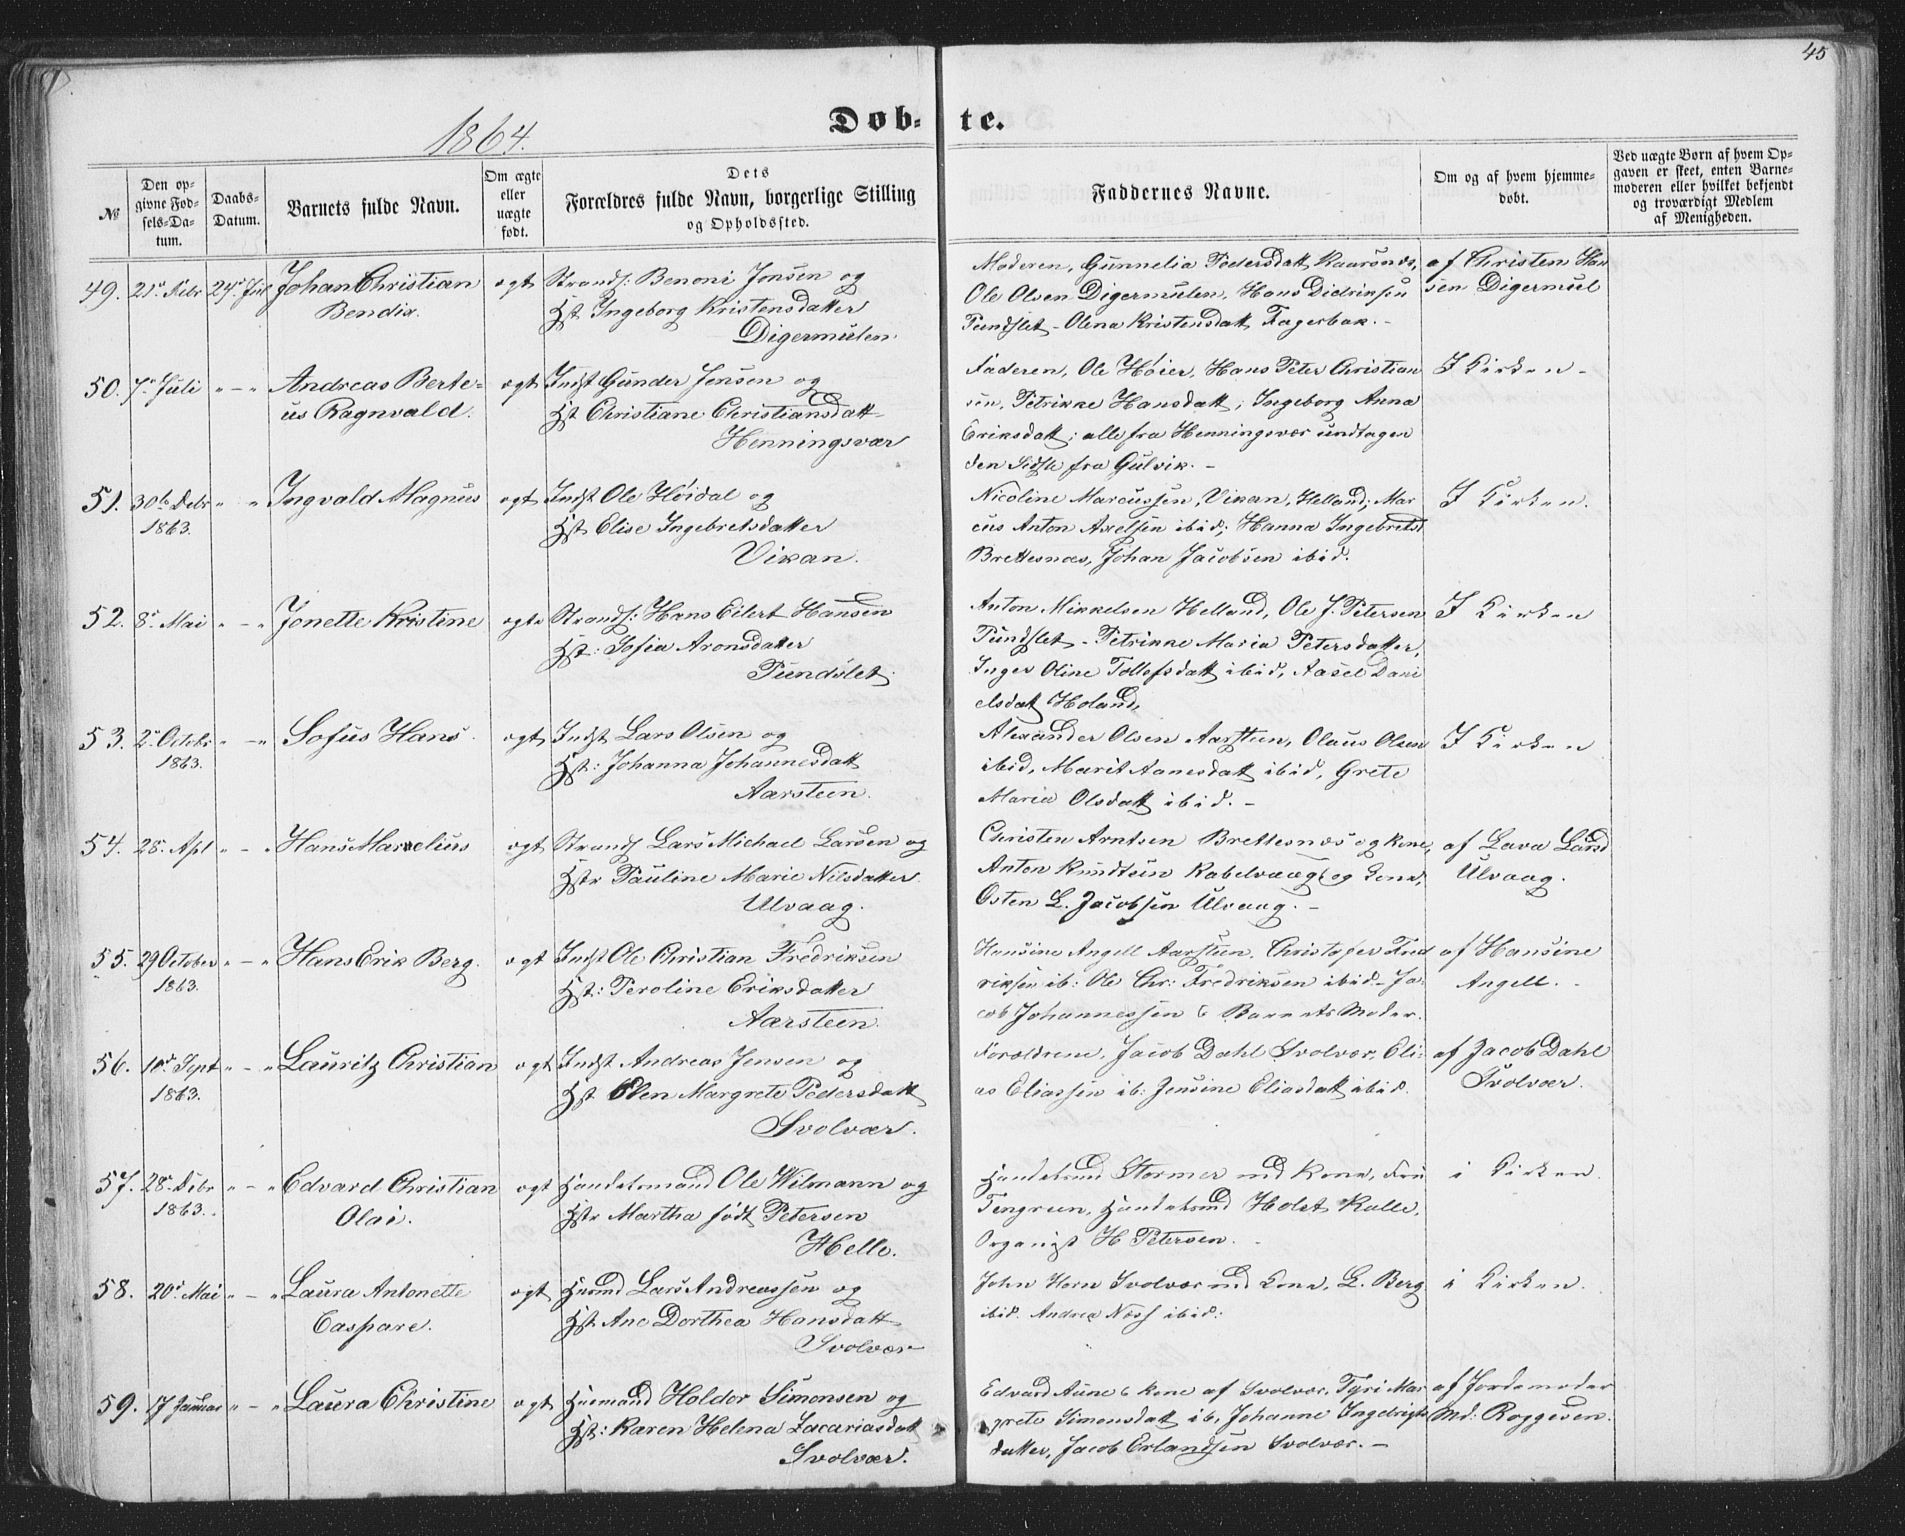 45
1864.
Döb- te.
№
Den opgivne Fødsels-Datum.
Daabs-Datum.
Barnets fulde Navn.
Om ægte eller uægte født.
Dets Forældres fulde Navn, borgerlige Stilling og Opholdssted.
Faddernes Navne.
Om og af hvem hjemmedøbt.
Ved uægte Børn af hvem Opgaven er skeet, enten Barnemoderen eller hvilket bekjendt og troværdigt Medlem af Menigheden.
49. 21de Febr 24de Juli Johan Christian ægt Strands: Benoni Jonsen og
Bendix. Hst Ingeborg Kristensdatter
Digermulen.
Moderen, Gunnelia Pedersdatt
Ole Olsen Digermulen, Hans Didriksen
Pundslet - Olena Kristensdatt Fagerbak. -
af Christen Han
sen Digermul
50. 7de Juli " - " Andreas Berte- ægt Indst Gunder Jensen og
us Ragnvald. Hst Christiane Christiansdatt
Henningsvær
Faderen, Ole Høier, Hans Peter Christian
sen, Petrikke Hansdatt, Ingeborg Anna
Eriksdatt; alle fra Henningsvær undtagen
den Sidste fra Gulvik. -
I Kirken -
51. 30te Debr " " Ingvald Magnus ægt Indst Ole Høidal og
1863. Hst Elise Ingebretsdatter
Vikan.
Nicoline Marcussen, Vikan, Helland; Mar
cus Anton Axelsen ibid; Hanna Ingebretsd
Brettesnæs, Johan Jacobsen ibid.
I Kirken.
52. 8de Mai " - " Jonette Kristine ægte Strands: Hans Eilert Hansen
Hst: Sofia Aronsdatter
Pundslet.
Anton Mikkelsen Helland, Ole J. Petersen
Pundslet - Petrikke Maria Petersdatter,
Inger Oline Tollefsdatt ibid, Aasel Dani
elsdatt Holand,
I Kirken
53. 2de Octobr " - " Sofus Hans. ægt Indst Lars Olsen og
1863. Hst: Johanna Johannesdatt
Aarsteen.
Alexander Olsen Aarsteen, Olaus Olsen
ibid, Marit Aanesdatt ibid, Grete
Maria Olsdatt ibid. -
I Kirken
54. 28de Apl " - " Hans Marselius ægt Strands Lars Michael Larsen og
Hstr Pauline Marie Nilsdatter
Ulvaag.
Christen Arntsen Brettesnæs og Kone,
Anton Knudtsen Kabelvaag og Kone,
Osten L. Jacobsen Ulvaag. -
af Lava Larsd
Ulvaag.
55. 29 October " - " Hans Erik Berg. ægt Indst Ole Christian Fredriksen
1863. Hst: Peroline Eriksdatter
Aarsteen.
Hansine Angell Aarsteen, Christofer Fred
riksen ib: Ole Chr: Fredriksen ibid - Ja-
cob Johannessen & Barnets Moder.
af Hansine
Angell. -
56. 10de Sept " - " Lauritz Christian ægt Indst Andreas Jensen og
1863. Hst Elen Margrete Pedersdatt
Svolvær.
Forældrene, Jacob Dahl Svolvær, Eli-
as Eliassen ib: Jensine Eliasdatt ibid.
af Jacob Dahl
Svolvær.
57. 28de Debr " - " Edvard Christian ægt Handelsmand Ole Wilmann og
1863. Olai. Hstr Martha født Petersen
Helle.
Handelsmd Stormer md Kone, Fru
Tengreen, Handelsmd Holst Kalle,
Organist H Petersen. -
i Kirken.
58. 20de Mai " - " Laura Antonette ægt Husmd Lars Andreassen og
Caspare. Hst Ane Dorthea Hansdatt
Svolvær
John Horn Svolvær md Kone, L. Berg
ibid. Andrea Næss ibid:
i Kirken.
59. 17 Januar " - " Laura Christine ægt Husmand Holdor Simonsen og
Hst: Karen Helena Zacariasdatt
Svolvær.
Edvard Aune & Kone af Svolvær, Tyri Mar
grete Simonsdatt ib, Johanne Ingebrigts
datter, Jacob Erlandsen Svolvær. -
af Jordemoder
Md: Roggesen.